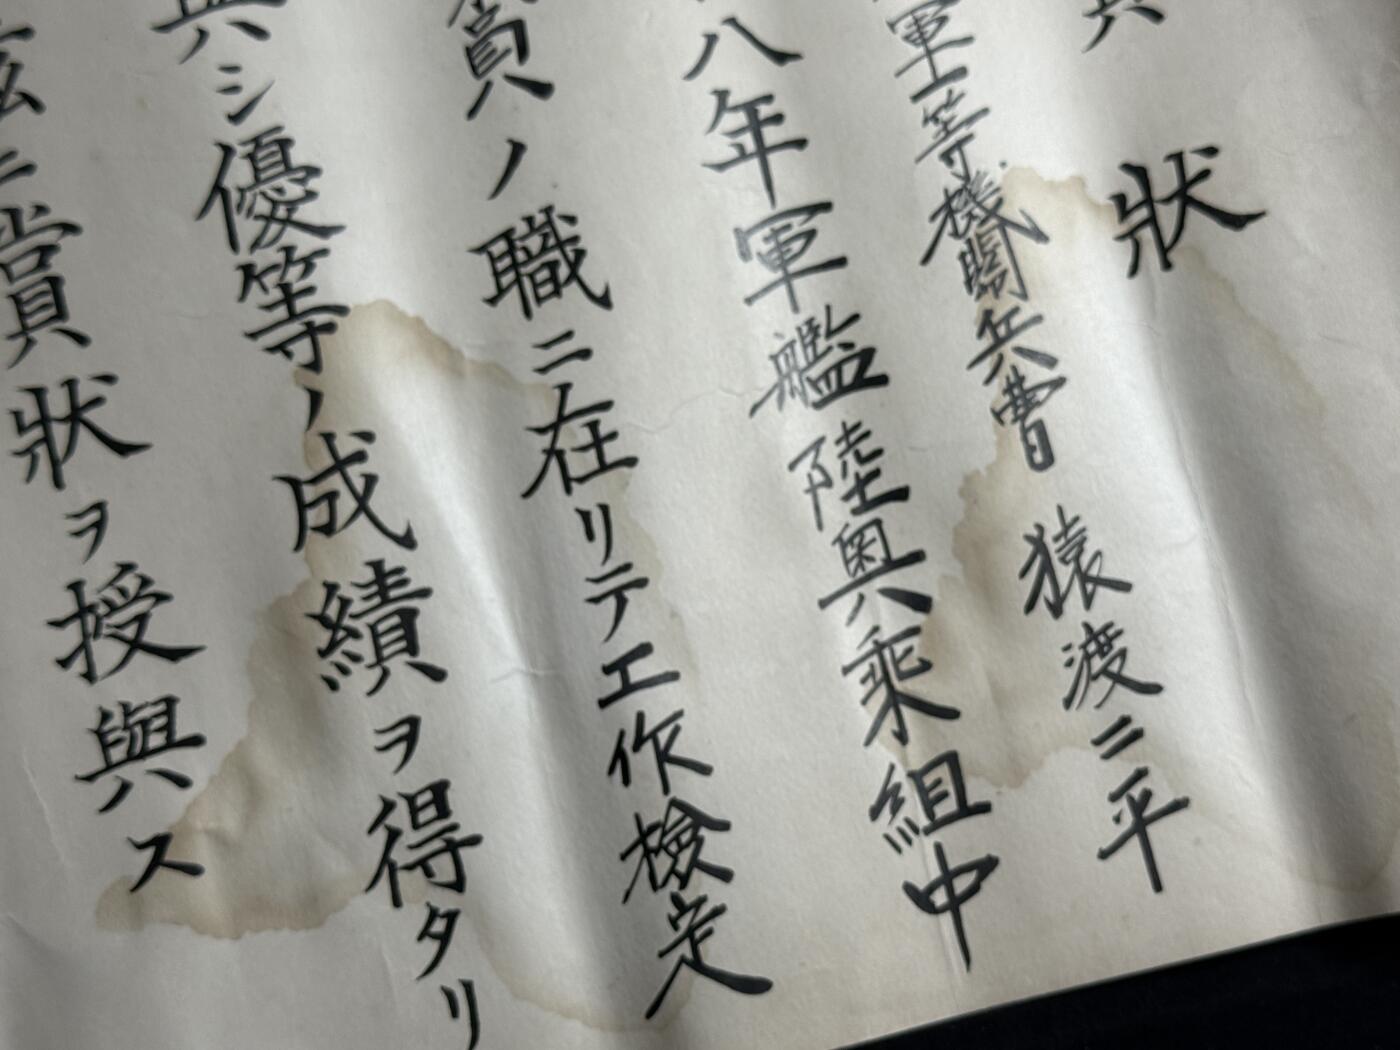 狀
軍一等機關兵曹 猿渡二平
八年軍艦陸奧乘組中
員ノ職ニ在リテ工作檢定
與シ優等ノ成績ヲ得タリ
茲ニ賞狀ヲ授與ス